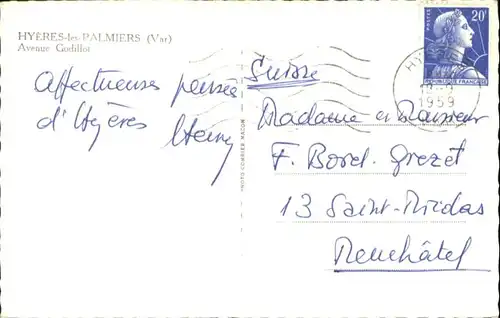 HYÈRES-les-PALMIERS (Var)
Avenue Godillot
Affectueuses pensées
d'Hyères
PHOTO COMBIER MACON
POSTES
20F
REPUBLIQUE FRANÇAISE
HY
1959
Suisse
Madame et Monsieur
F. Borel-Grezet
13 Saint-Nicolas
Neuchâtel